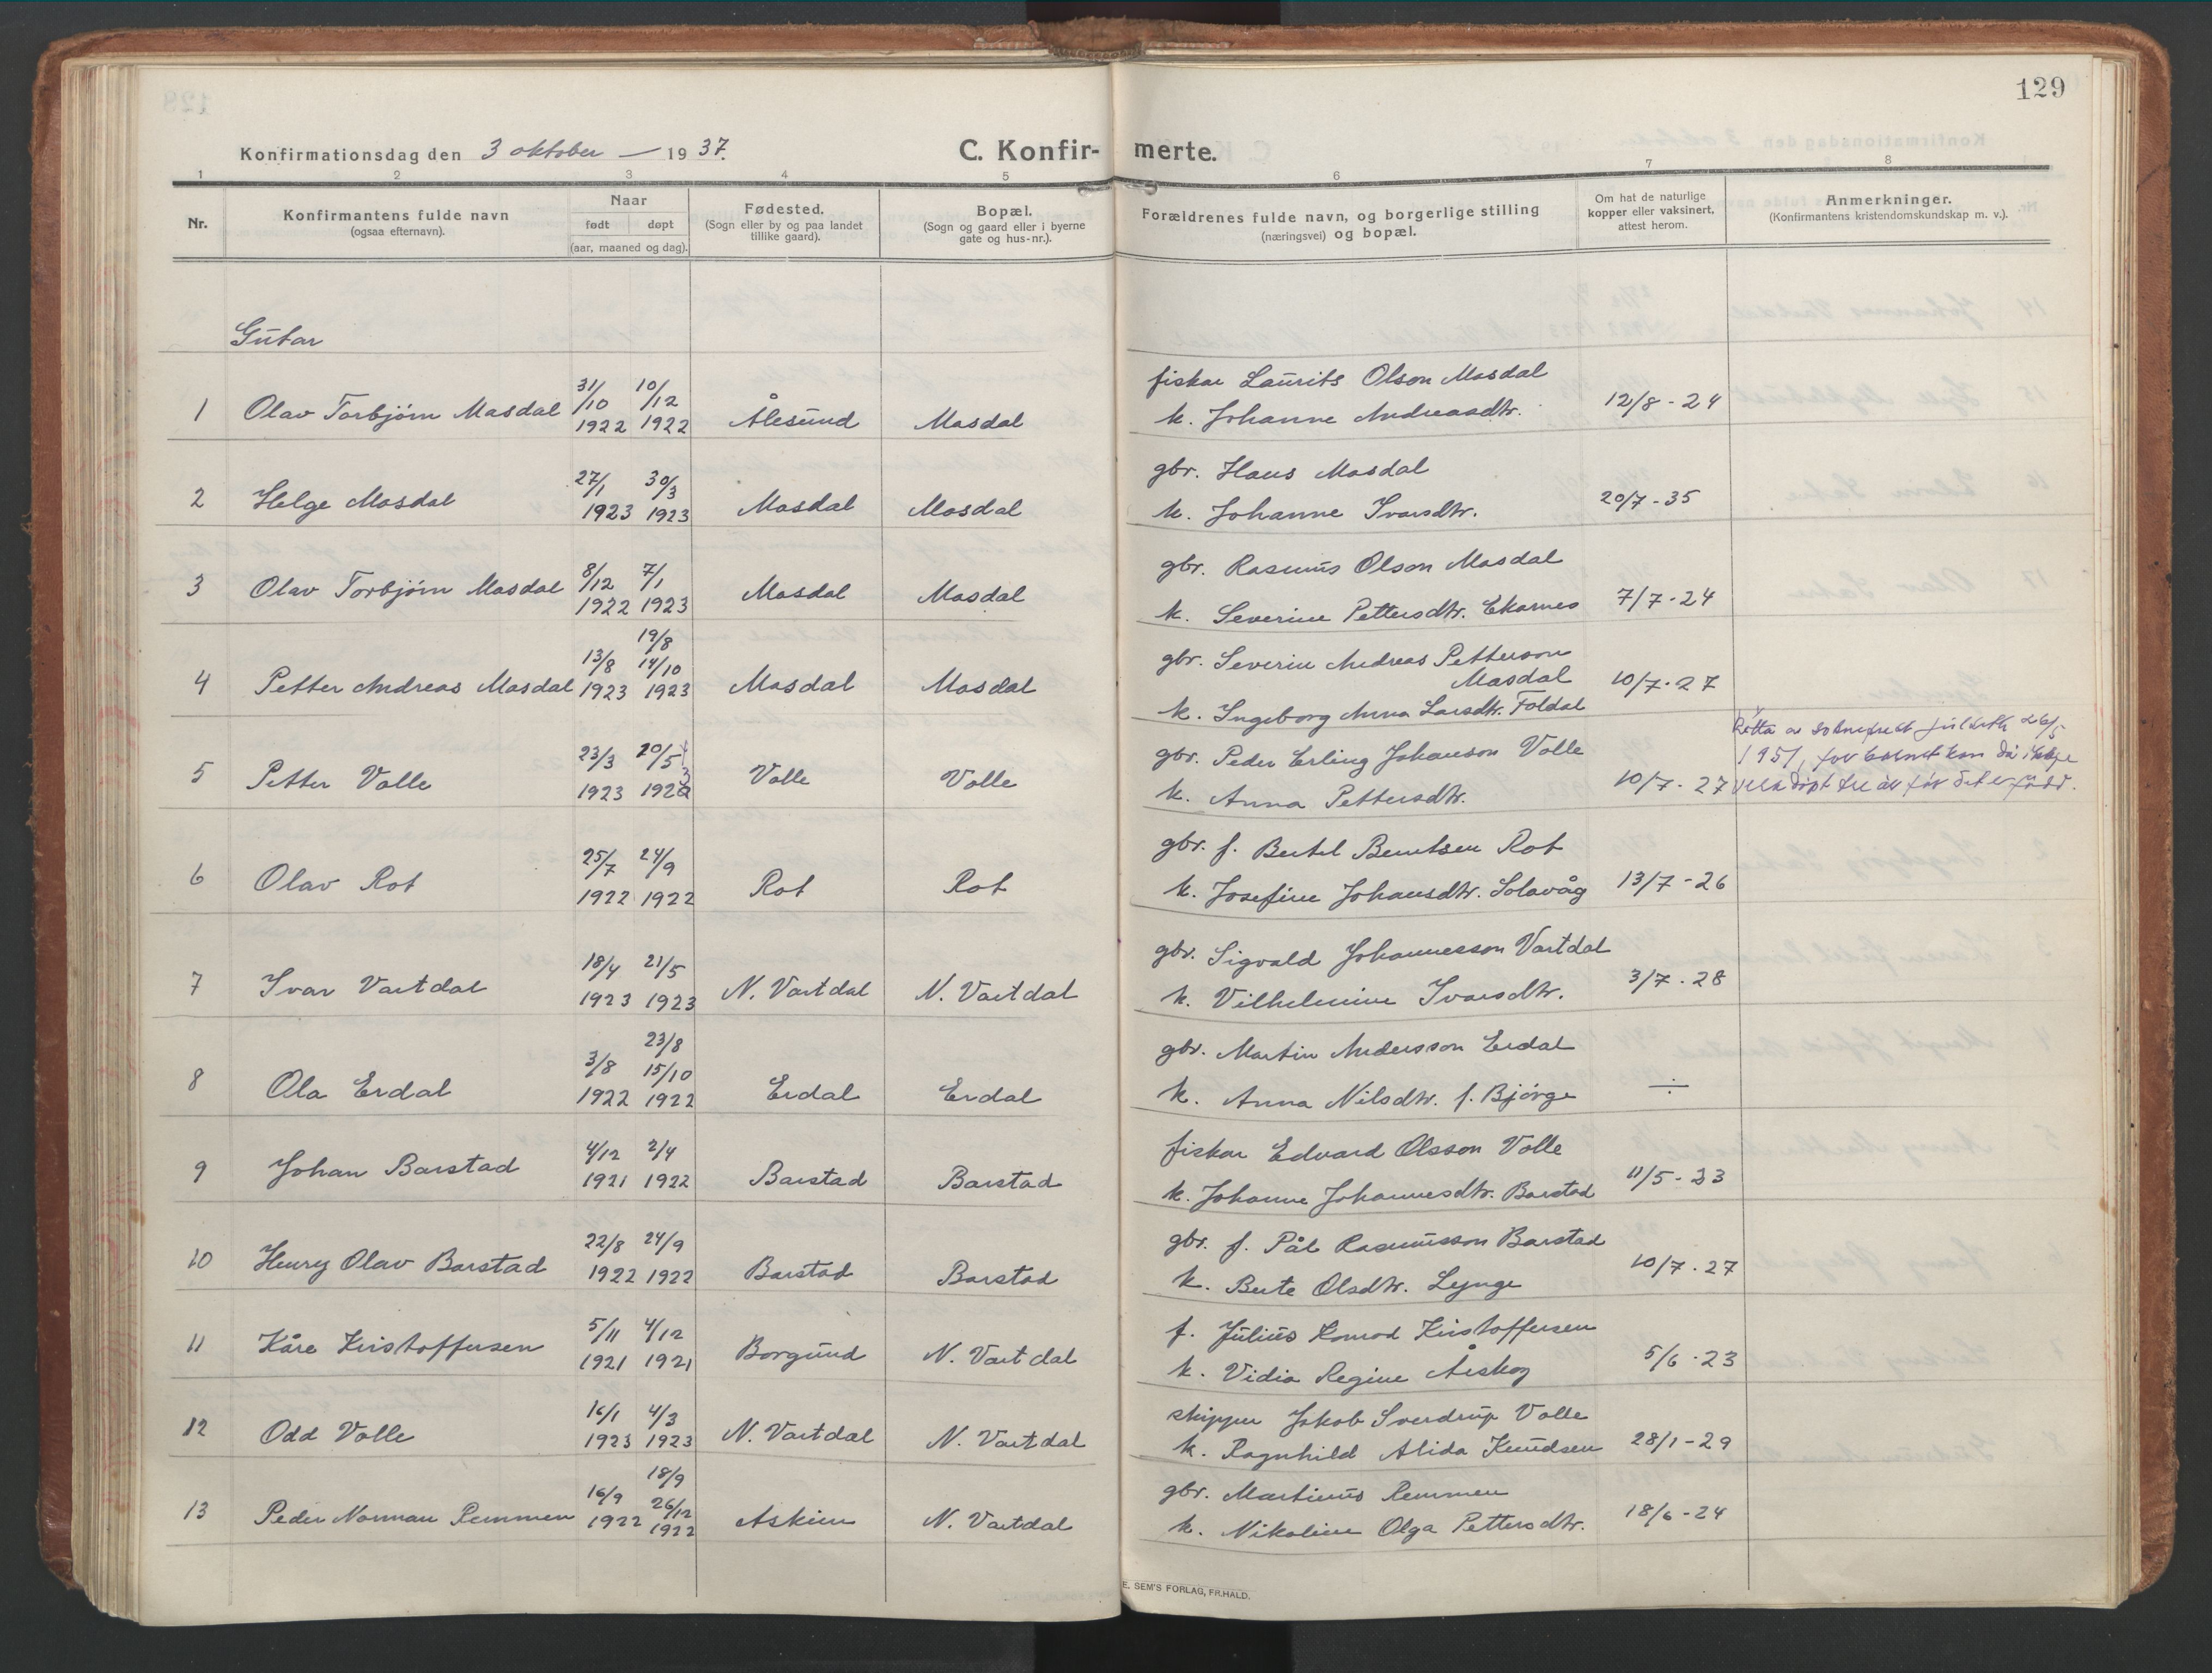 129
Konfirmationsdag den 3 oktober — 19 37.
C. Konfir- merte.
1 2 3 4 5 6 7 8
Nr.
Konfirmantens fulde navn
(ogsaa efternavn).
Naar
født døpt
(aar, maaned og dag).
Fødested.
(Sogn eller by og paa landet
tillike gaard).
Bopæl.
(Sogn og gaard eller i byerne
gate og hus-nr.).
Forældrenes fulde navn, og borgerlige stilling
(næringsvei) og bopæl.
Om hat de naturlige
kopper eller vaksinert,
attest herom.
Anmerkninger.
(Konfirmantens kristendomskundskap m. v.).
Gutar
fiskar Laurits Olson Masdal
1 Olav Torbjørn Masdal 31/10 1922 10/12 1922 Ålesund Masdal k. Johanne Andreasdtr. 12/8-24
gbr. Hans Masdal
2 Helge Masdal 27/1 1923 30/3 1923 Masdal Masdal k. Johanne Ivarsdtr. 20/7-35
gbr. Rasmus Olson Masdal
3 Olav Torbjørn Masdal 8/12 1922 7/1 1923 Masdal Masdal k. Severine Pettersdtr. Ekornes 7/7-24
gbr. Severin Andreas Petterson
Masdal
4 Petter Andreas Masdal 13/8 1923 19/8 14/10 1923 Masdal Masdal k. Ingeborg Anna Larsdtr. Foldal 10/7-27
gbr. Peder Erling Johanson Valle
5 Petter Valle 23/3 1923 20/5 192 Valle Valle k. Anna Pettersdtr. 10/7-27
Retta av sokneprest 26/5
1951, for barnet kan då ikkje
vera døpt tre år før det er født.
gbr. f. Bertel Berntsen Rot
6 Olav Rot 25/7 1922 24/9 1922 Rot Rot k. Josefine Johansdtr. Solavåg 13/7-26
gbr. Sigvald Johannesson Vartdal
7 Ivar Vartdal 18/4 1923 21/5 1923 N. Vartdal N. Vartdal k. Vilhelmine Ivarsdtr. 3/7-28
gbr. Martin Andersson Erdal
8 Ola Erdal 3/8 1922 23/8 15/10 1922 Erdal Erdal k. Anna Nilsdtr. f. Bjørge ÷
fiskar Edvard Olsson Valle
9 Johan Barstad 4/12 1921 2/4 1922 Barstad Barstad k. Johanne Johannesdtr. Barstad 11/5-33
gbr. f. Pål Rasmusson Barstad
10 Henry Olav Barstad 22/8 1922 24/9 1922 Barstad Barstad k. Berte Olsdtr. Lynge 10/7-27
f. Julius Konrad Kristoffersen
11 Kåre Kristoffersen 5/11 1921 4/12 1921 Borgund N. Vartdal k. Vidia Regine Årskog 5/6-23
skipper Jakob Sverdrup Valle
12 Odd Valle 16/1 1923 4/3 1923 N. Vartdal N. Vartdal k. Ragnhild Alida Knudsen 28/1-29
gbr. Martinus Remmen
13 Peder Norman Remmen 16/9 1922 18/9 26/12 1922 Askim N. Vartdal k. Nikoline Olga Pettersdtr. 18/6-24
E. SEM'S FORLAG, FR.HALD.